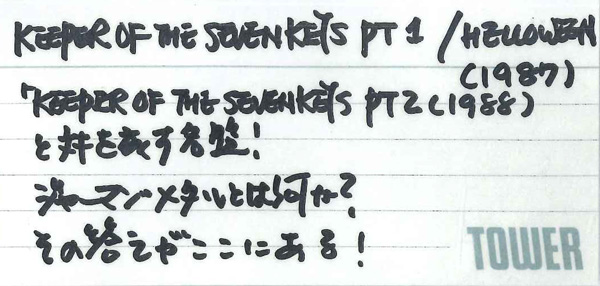 KEEPER OF THE SEVEN KEYS PT 1 / HELLOWEEN
(1987)
「KEEPER OF THE SEVEN KEYS PT2 (1988)
と対を成す名盤!
ジャーマンメタルとは何か?
その答えがここにある!
TOWER